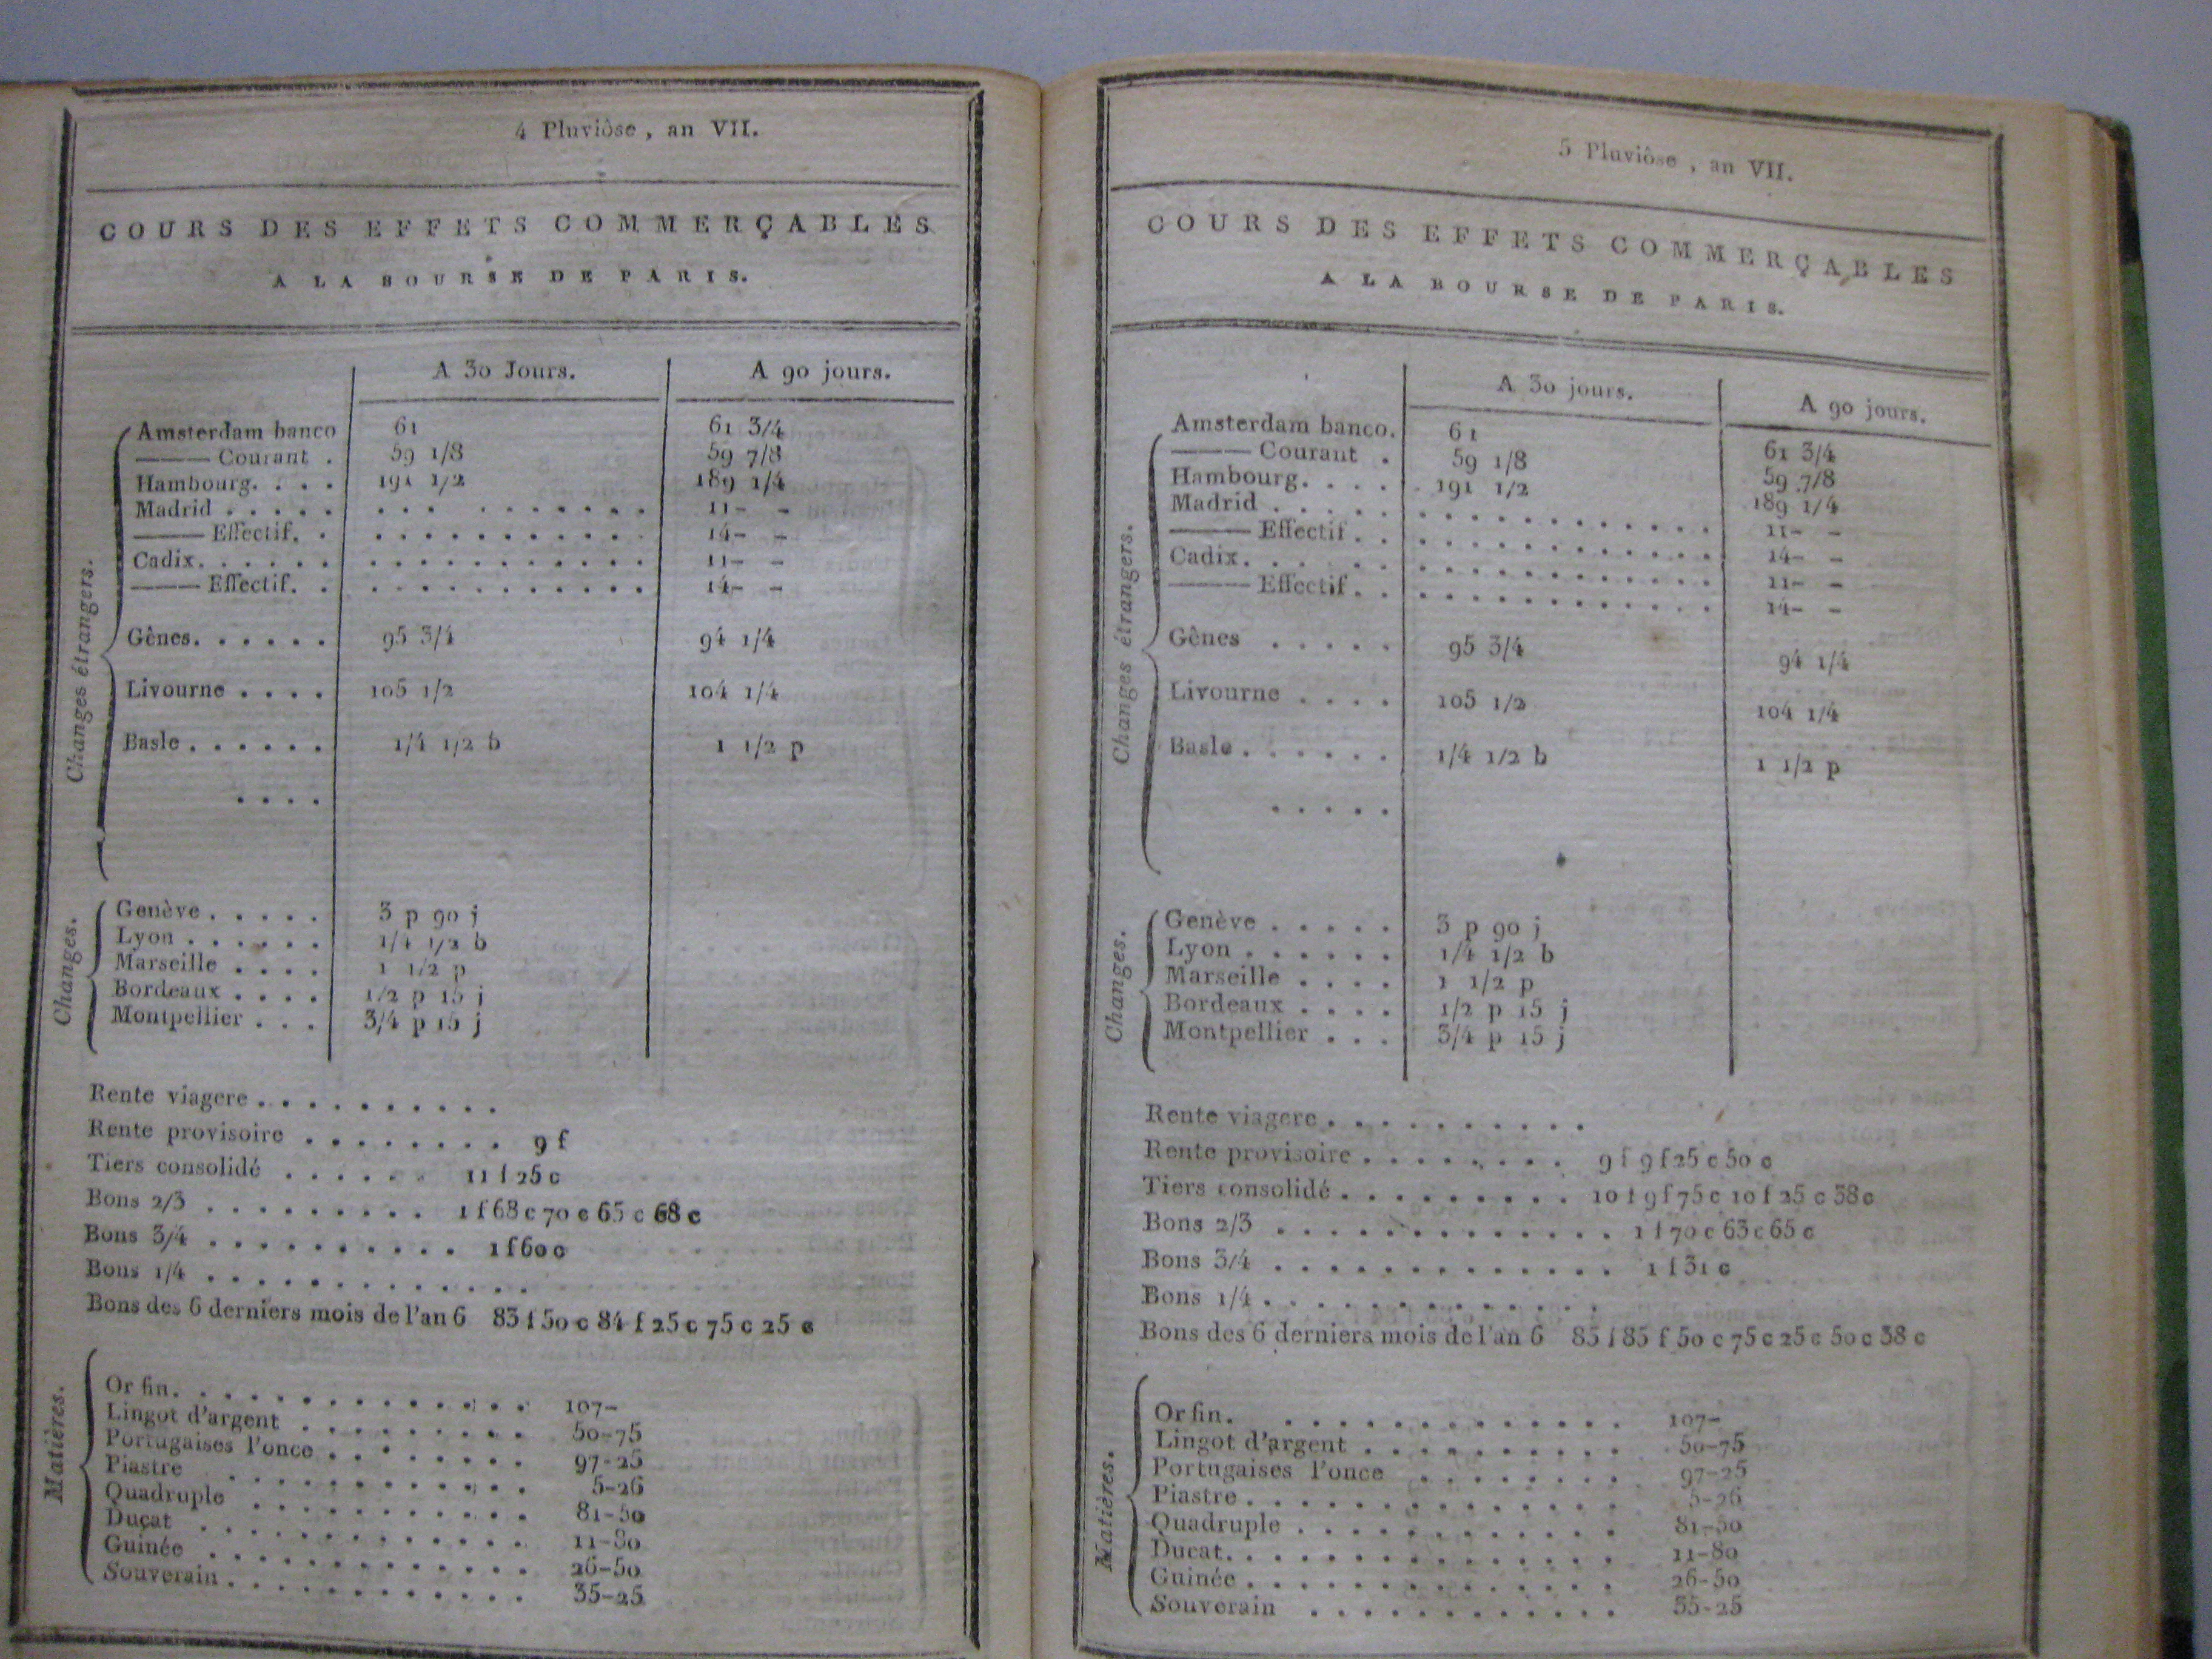 4 Pluviôse, an VII.
COURS DES EFFETS COMMERÇABLES
A LA BOURSE DE PARIS.
A 30 Jours. A 90 jours.
Changes étrangers.
Amsterdam banco 61 61 3/4
——— Courant . 59 1/8 59 7/8
Hambourg. . . . 191 1/2 189 1/4
Madrid . . . . . . . . . . . . . . . 11- -
——— Effectif. . . . . . . . . . . . . 14- -
Cadix. . . . . . . . . . . . . . . . . 11- -
——— Effectif. . . . . . . . . . . . . 14- -
Gênes. . . . . . 95 3/4 94 1/4
Livourne . . . . 105 1/2 104 1/4
Basle . . . . . . 1/4 1/2 b 1 1/2 p
. . . .
Changes.
Genève . . . . . 3 p 90 j
Lyon . . . . . . 1/4 1/2 b
Marseille . . . . 1 1/2 p
Bordeaux . . . . 1/2 p 15 j
Montpellier . . . 3/4 p 15 j
Rente viagere . . . . . . . . . .
Rente provisoire . . . . . . . . 9 f
Tiers consolidé . . . . . . 11 f 25 c
Bons 2/3 . . . . . . . . . 1 f 68 c 70 c 65 c 68 c
Bons 3/4 . . . . . . . . . . 1 f 60 c
Bons 1/4 . . . . . . . . . . . . .
Bons des 6 derniers mois de l'an 6 83 f 50 c 84 f 25 c 75 c 25 c
Matières.
Or fin. . . . . . . . . . . . . . 107-
Lingot d'argent . . . . . . . . . 50-75
Portugaises l'once . . . . . . . . 97-25
Piastre . . . . . . . . . . . . 5-26
Quadruple . . . . . . . . . . . 81-50
Ducat . . . . . . . . . . . . . 11-80
Guinée . . . . . . . . . . . . . 26-50
Souverain . . . . . . . . . . . . 35-25
5 Pluviôse, an VII.
COURS DES EFFETS COMMERÇABLES
A LA BOURSE DE PARIS.
A 30 jours. A 90 jours.
Changes étrangers.
Amsterdam banco. 61 61 3/4
——— Courant . 59 1/8 59 7/8
Hambourg. . . . 191 1/2 189 1/4
Madrid . . . . . . . . . . . . . . . . 11- -
——— Effectif . . . . . . . . . . . . . 14- -
Cadix. . . . . . . . . . . . . . . . . 11- -
——— Effectif . . . . . . . . . . . . . 14- -
Gênes . . . . . 95 3/4 94 1/4
Livourne . . . . 105 1/2 104 1/4
Basle . . . . . . 1/4 1/2 b 1 1/2 p
. . . . .
Changes.
Genève . . . . . 3 p 90 j
Lyon . . . . . . 1/4 1/2 b
Marseille . . . . 1 1/2 p
Bordeaux . . . . 1/2 p 15 j
Montpellier . . . 3/4 p 15 j
Rente viagere . . . . . . . . . .
Rente provisoire . . . . . . . . 9 f 9 f 25 c 50 c
Tiers consolidé . . . . . . . . . 10 f 9 f 75 c 10 f 25 c 38 c
Bons 2/3 . . . . . . . . . . . . . 1 f 70 c 63 c 65 c
Bons 3/4 . . . . . . . . . . . . . 1 f 31 c
Bons 1/4 . . . . . . . . . . . . .
Bons des 6 derniers mois de l'an 6 85 f 85 f 50 c 75 c 25 c 50 c 38 c
Matières.
Or fin. . . . . . . . . . . . . . 107-
Lingot d'argent . . . . . . . . . . 50-75
Portugaises l'once . . . . . . . . 97-25
Piastre . . . . . . . . . . . . . . 5-26
Quadruple . . . . . . . . . . . . 81-50
Ducat. . . . . . . . . . . . . . . 11-80
Guinée . . . . . . . . . . . . . . 26-50
Souverain . . . . . . . . . . . 35-25